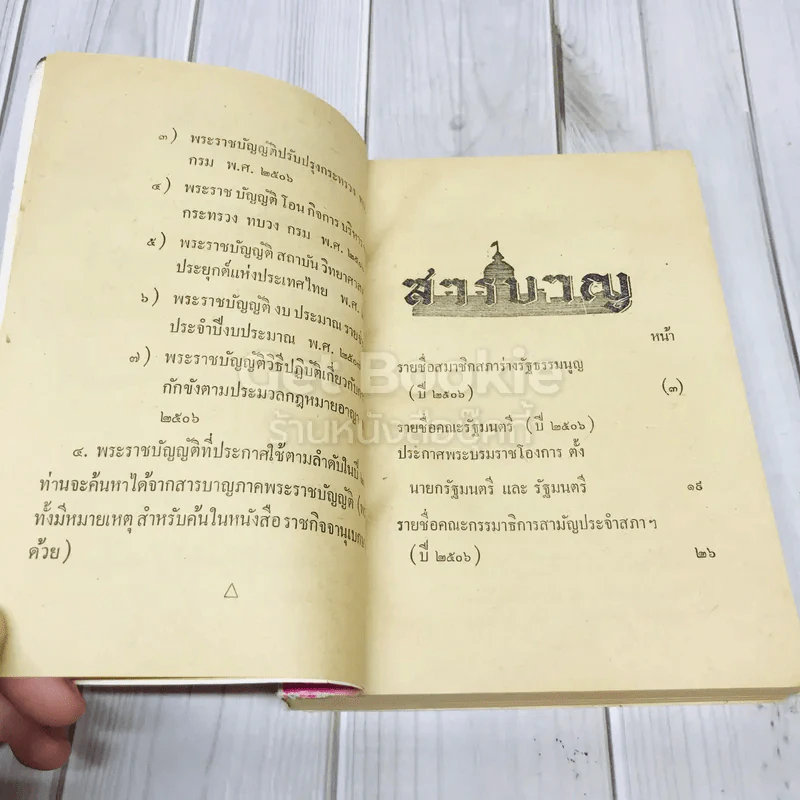 ๓) พระราชบัญญัติปรับปรุงกระทรวง
กรม พ.ศ. ๒๕๐๖
๔) พระราช บัญญัติ โอน กิจการ บริหาร
กระทรวง ทบวง กรม พ.ศ.
๕) พระราชบัญญัติ สถาบัน
ประยุกต์แห่งประเทศไทย พ.ศ.
๖) พระราชบัญญัติ งบ ประมาณ
ประจำปีงบประมาณ พ.ศ.
๗) พระราชบัญญัติวิธีปฏิบัติเกี่ยวกับ
กักขังตามประมวลกฎหมายอาญา
๒๕๐๖
๔. พระราชบัญญัติที่ประกาศใช้ตามลำดับในปี
ท่านจะค้นหาได้จากสารบาญภาคพระราชบัญญัติ
ทั้งมีหมายเหตุ สำหรับค้นในหนังสือ ราชกิจจานุเบกษา
ด้วย)
สารบาญ
หน้า
รายชื่อสมาชิกสภาร่างรัฐธรรมนูญ
(ปี ๒๕๐๖) (๓)
รายชื่อคณะรัฐมนตรี (ปี ๒๕๐๖)
ประกาศพระบรมราชโองการ ตั้ง
นายกรัฐมนตรี และ รัฐมนตรี ๑๙
รายชื่อคณะกรรมาธิการสามัญประจำสภา ฯ
(ปี ๒๕๐๖) ๒๖
Get Bookie
ร้านหนังสือบุ๊คกี้